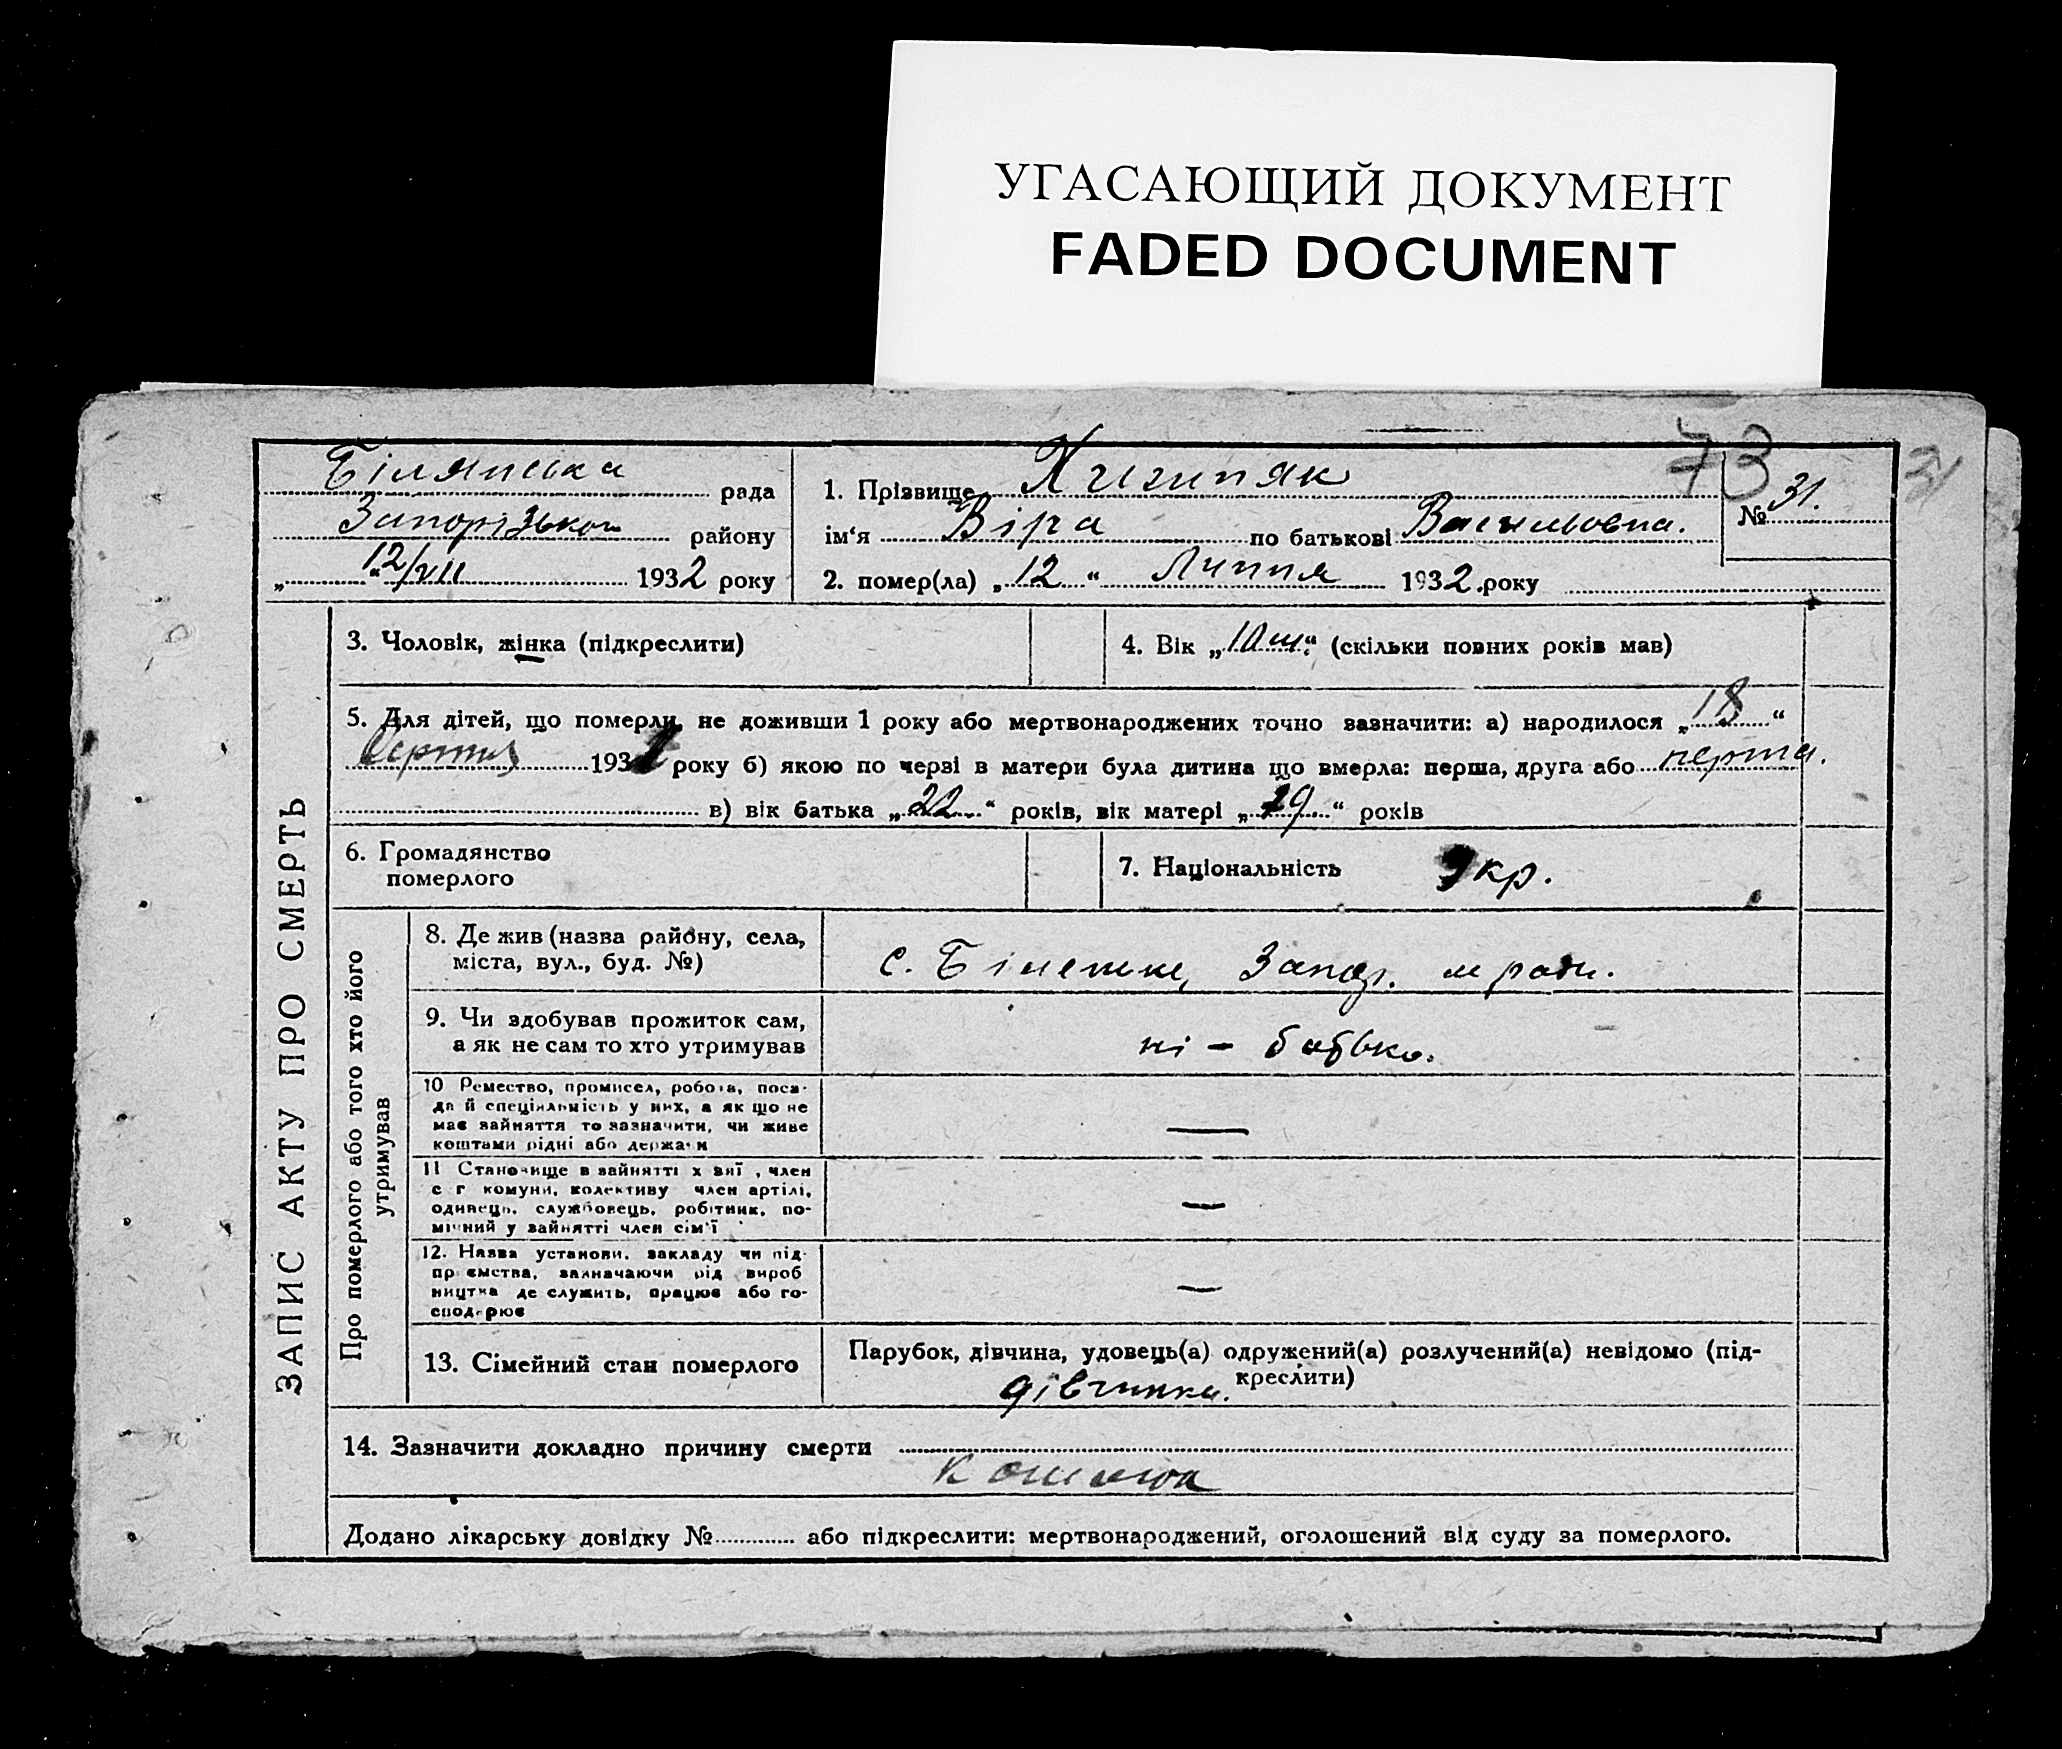 УГАСАЮЩИЙ ДОКУМЕНТ
FADED DOCUMENT
73
31
Білянська рада
Запорізького району
„ “ 12/VII 1932 року
1. Прізвище
№ 31.
ім‘я Віра по батькові Васильовна.
2. помер(ла) „ 12 “ Липня 1932. року
ЗАПИС АКТУ ПРО СМЕРТЬ
3. Чоловік, жінка (підкреслити)
4. Вік „ 10 м. “ (скільки повних років мав)
5. Для дітей, що померли, не доживши 1 року або мертвонароджених точно зазначити: а) народилося „ 18 “
Серпня 1931 року б) якою по черзі в матери була дитина що вмерла: перша, друга або перша.
в) вік батька „ 22 “ років, вік матері „ 19 “ років
6. Громадянство
померлого
7. Національність Укр.
Про померлого або того хто його
утримував
8. Де жив (назва району, села,
міста, вул., буд. №)
с. Біленьке, Запор. м ради.
9. Чи здобував прожиток сам,
а як не сам то хто утримував
ні - батько.
10 Ремество, промисел, робота, поса-
да й спеціяльність у них, а як що не
має зайняття то зазначити, чи живе
коштами рідні або держави
—
11 Становище в зайнятті , член
с г комуни, колективу член артілі,
одинець, службовець, робітник, по-
мічний у зайнятті член сім‘ї
—
12. Назва установи, закладу чи під-
приємства, зазначаючи рід вироб
ництва де служить, працює або го-
сподарює
—
13. Сімейний стан померлого
Парубок, дівчина, удовець(а) одружений(а) розлучений(а) невідомо (під-
креслити)
дівчинка.
14. Зазначити докладно причину смерти
Додано лікарську довідку № або підкреслити: мертвонароджений, оголошений від суду за померлого.